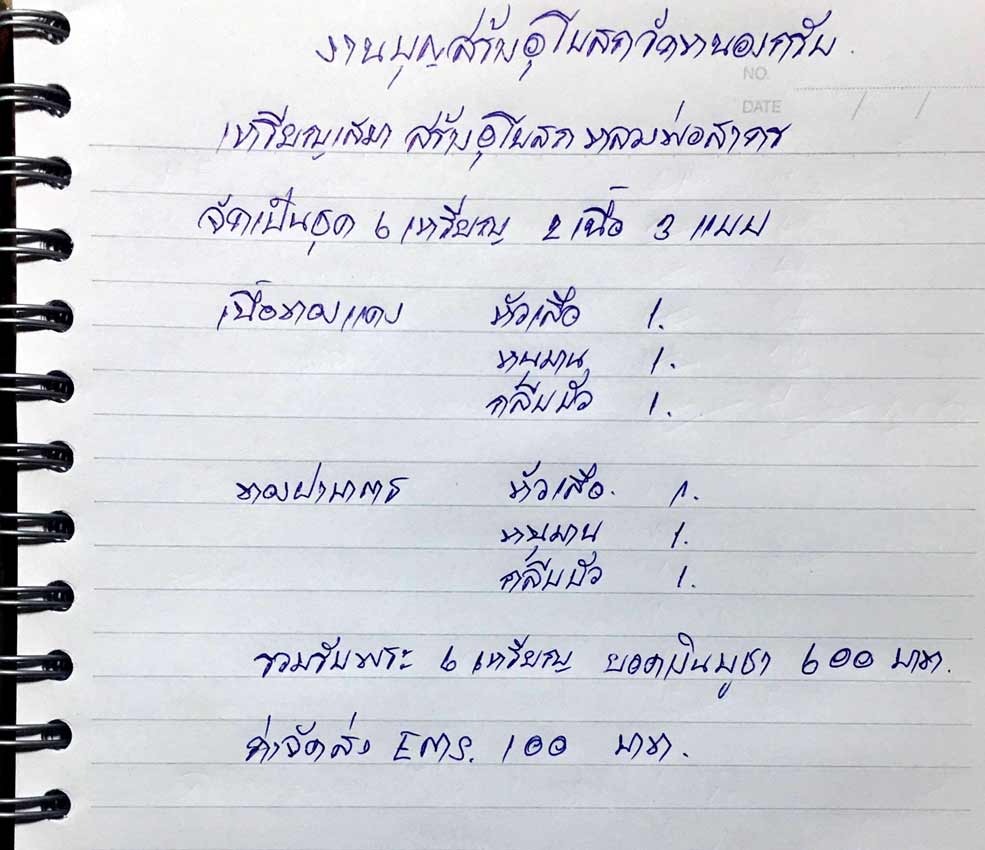 งานบุญสร้างอุโบสถวัดหนองกรับ.
NO.
DATE / /
เหรียญเสมา สร้างอุโบสถ หลวงพ่อสาคร
จัดเป็นชุด 6 เหรียญ 2 เนื้อ 3 แบบ
เนื้อทองแดง หัวเสือ 1.
หนุมาน 1.
กลีบบัว 1.
ทองฝาบาตร หัวเสือ. 1.
หนุมาน 1.
กลีบบัว 1.
รวมรับพระ 6 เหรียญ ยอดเงินบูชา 600 บาท.
ค่าจัดส่ง EMS. 100 บาท.